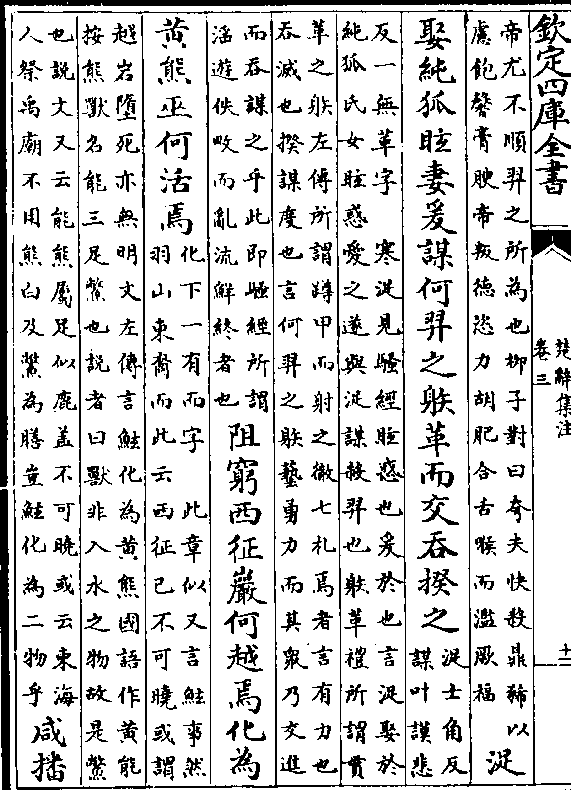 欽定四庫全書
楚辭集注
卷三
十二
帝尤不順羿之所為也柳子對曰夸夫快殺鼎豨以
慮飽馨膏腴帝叛德恣力胡肥合舌喉而濫厥福
浞
娶純狐眩妻爰謀何羿之䠶革而交吞揆之
浞士角反
謀叶謨悲
反一無革字 寒浞見騷經眩惑也爰於也言浞娶於
純狐氏女眩惑愛之遂與浞謀殺羿也䠶革禮所謂貫
革之䠶左傳所謂蹲甲而射之徹七札焉者言有力也
吞滅也揆謀度也言何羿之䠶藝勇力而其衆乃交進
而吞謀之乎此即騷經所謂
滛遊佚畋而亂流鮮終者也
阻窮西征巖何越焉化為
黄熊巫何活焉
化下一有而字 此章似又言鮌事然
羽山東裔而此云西征已不可曉或謂
越岩墮死亦無明文左傳言鮌化為黄熊國語作黄能
按熊獸名能三足鱉也說者曰獸非入水之物故是鱉
也說文又云能熊屬足似鹿盖不可曉或云東海
人祭禹廟不用熊白及鱉為膳豈鮌化為二物乎
咸播